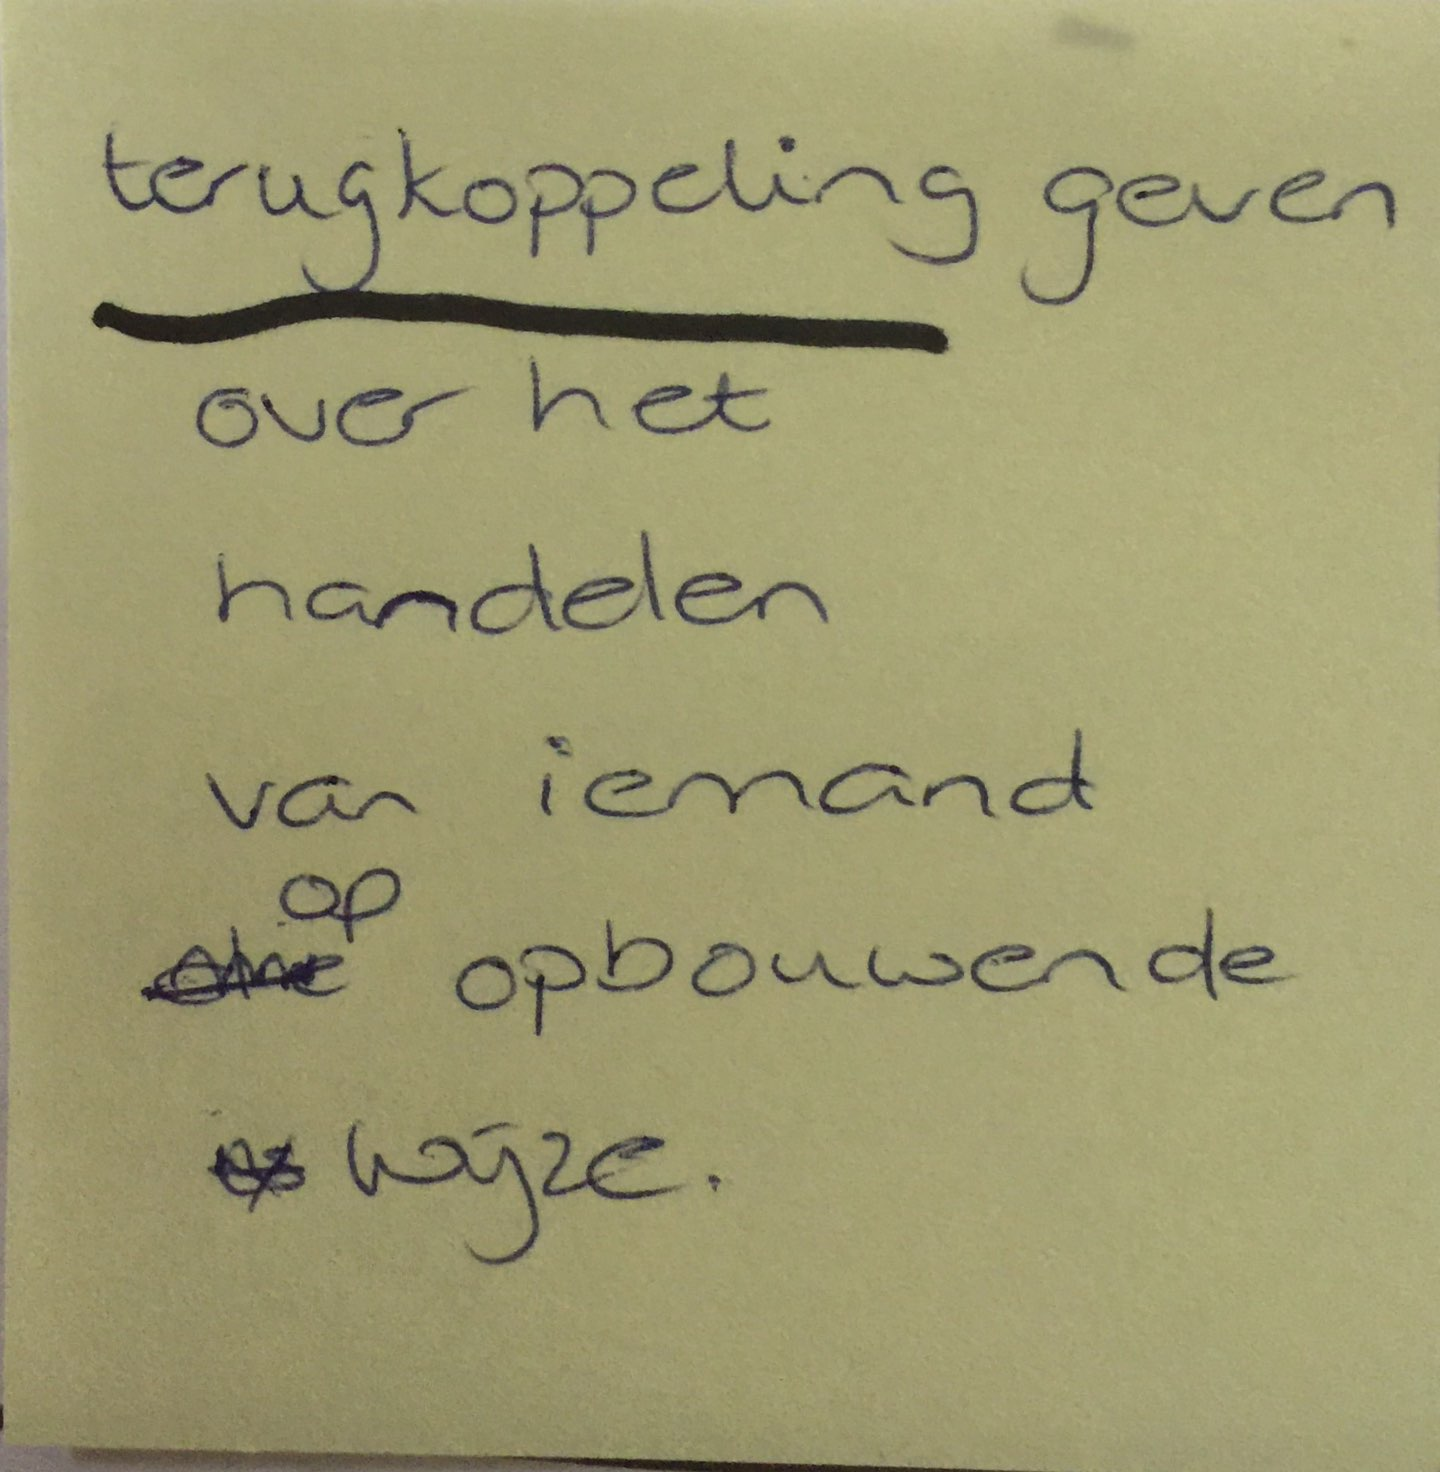 terugkoppeling geven
over het
handelen
van iemand
op
opbouwende
wijze.